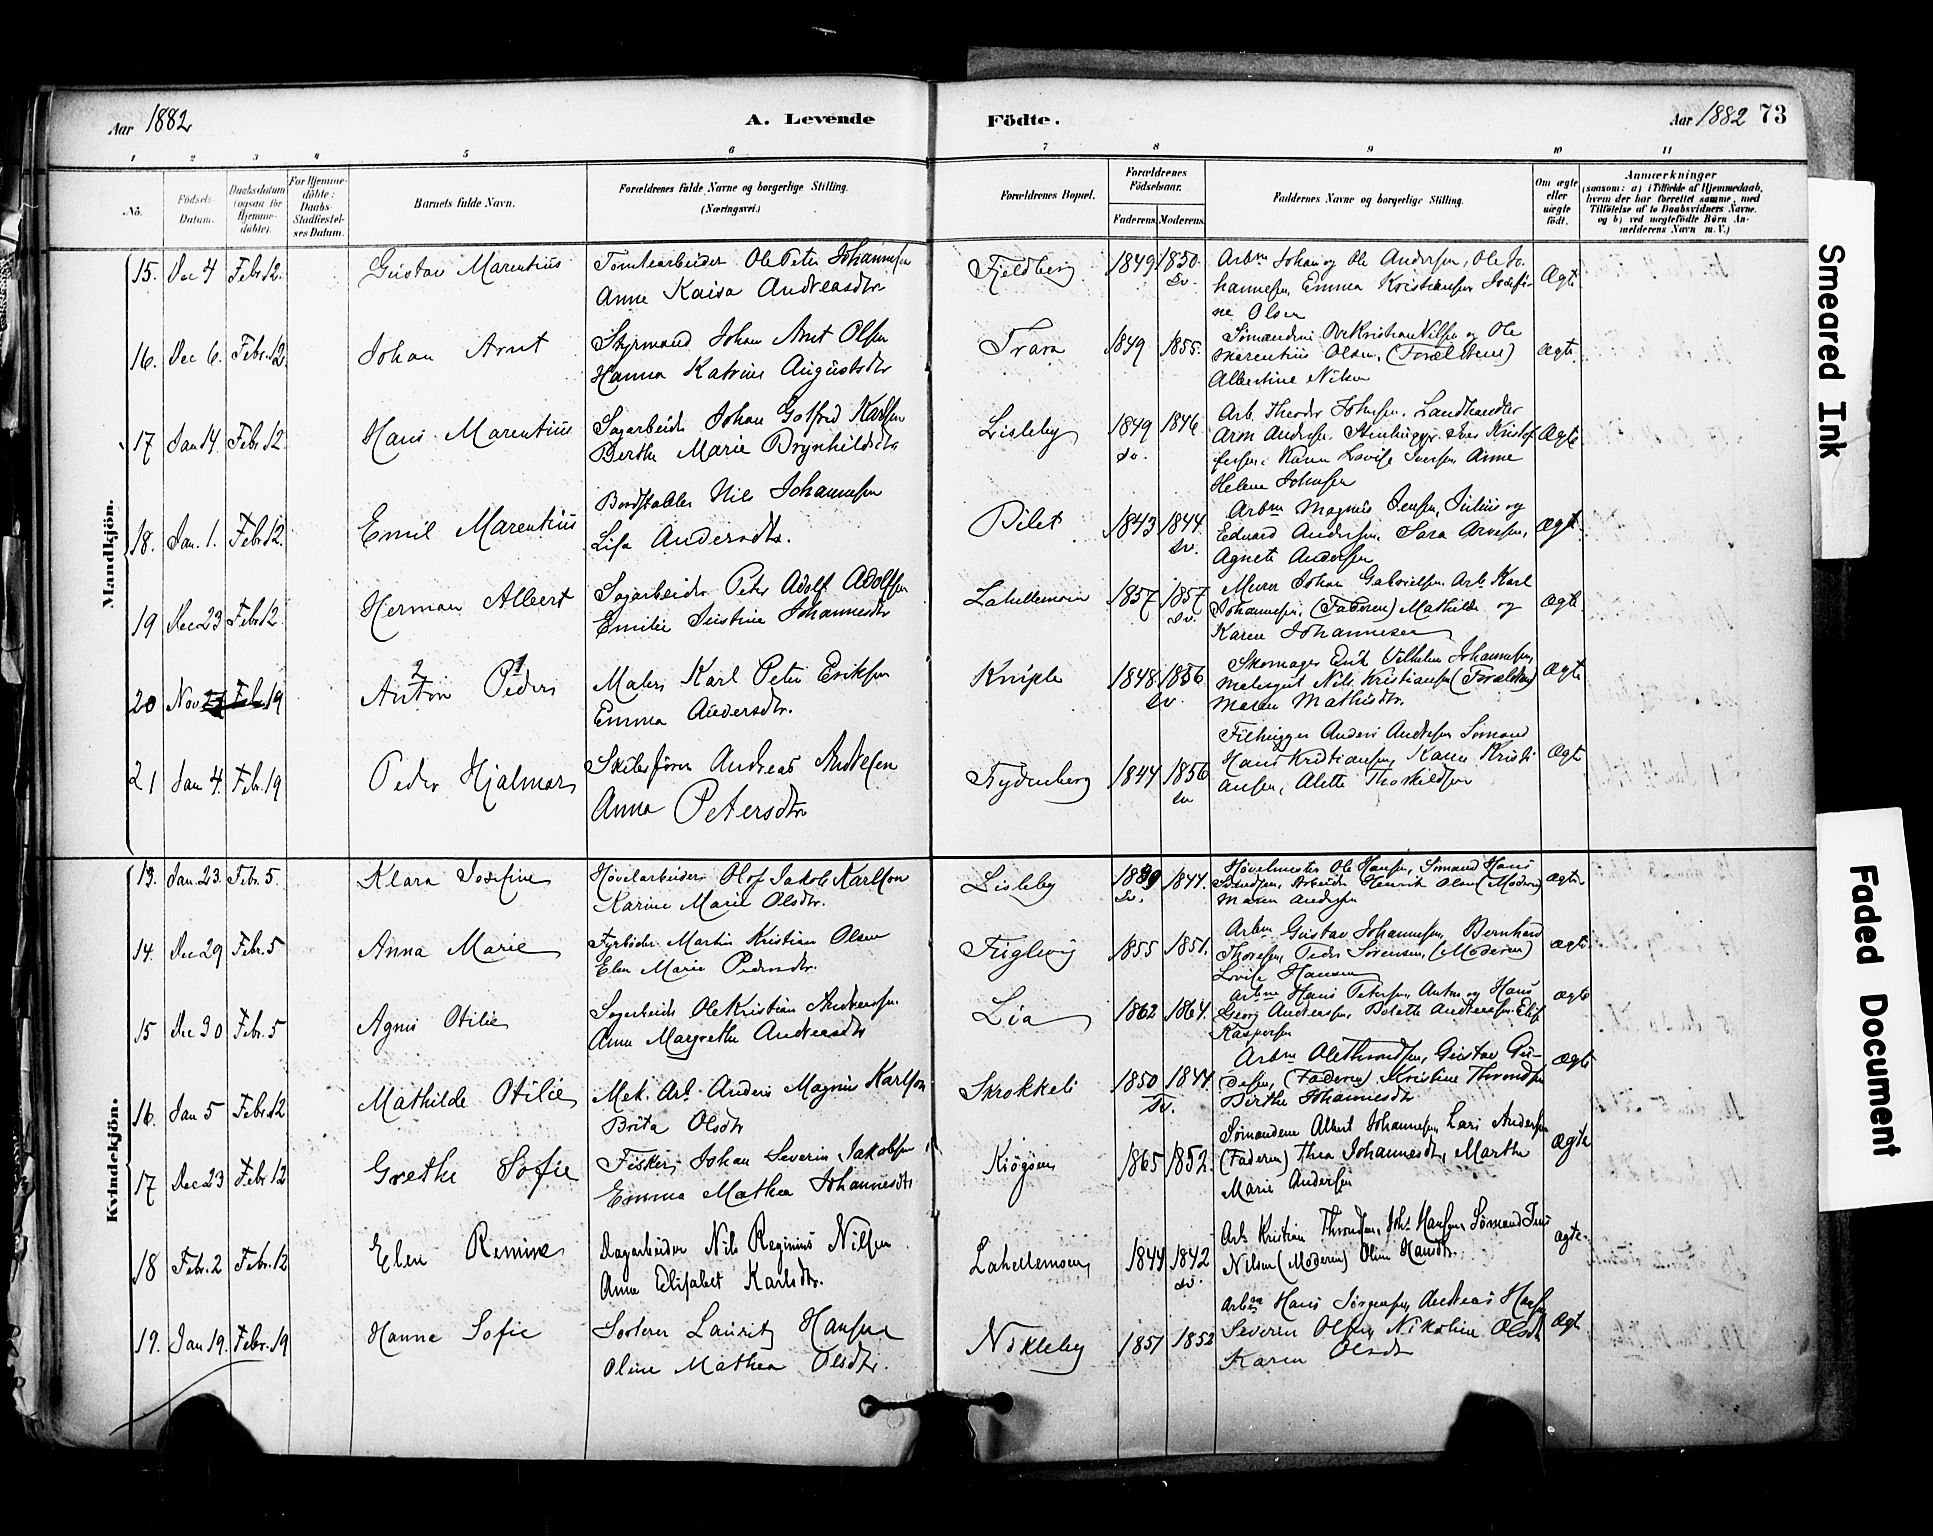 Aar 1882 A. Levende Födte. Aar 1882 73
1 2 3 4 5 6 7 8 9 10 11
No. Födsels-Datum. Daabsdatum (ogsaa for Hjemmedöbte). For Hjemmedöbte: Daabs-Stadfæstelses Datum. Barnets fulde Navn. Forældrenes fulde Navne og borgerlige Stilling. (Næringsvei.) Forældrenes Bopæl. Forældrenes Födselsaar. Faderens. Moderens. Faddernes Navne og borgerlige Stilling. Om ægte eller uægte födt. Anmærkninger (saasom: a) i Tilfælde af Hjemmedaab, hvem der har forrettet samme, med Tilföielse af to Daabsvidners Navne, og b) ved uægtefödte Børn Anmelderens Navn m. V.)
Mandkjön.
15. Dec 4 Febr. 12. Gustav Marentius Tomtearbeider Ole Peter Johannesen Fjeldberg 1849 1850. Arbm Johan og Ole Andersen, Ole Jo- Ægte
Anne Kaisa Andreasdtr Sv. hannesen, Emma Kristiansen Josefi-
ne Olsen
16. Dec 6. Febr. 12. Johan Arnt Styrmand Johan Arnt Olsen Trara 1849 1855. Sömændene Kristian Nilsen og Ole Ægte.
Hanna Katrine Augustsdtr Marentius Olsen, (Forældrene)
Albertine Nilsen
17 Jan 14. Febr. 12. Hans Marentius Sagarbeider Johan Gotfred Karlsen Lisleby 1849 1846 Arb. Theodor Johnsen. Landhandler Ægte
Berthe Marie Brynhildsdtr Sv. Arn Andersen. Stenhugger Iver Kristof-
fersen. Karen Lovise Jensen, Anne
Helene Johnsen
18. Jan. 1. Febr. 12. Emil Marentius Bordstabler Nils Johannesen Pilet 1843 1844. Arbm Magnus Jensen, Julius og Ægte.
Lisa Andersdtr. Sv. Edvard Andersen. Sara Arnesen,
Agnete Andersen
19 Dec 23 Febr. 12. Herman Albert Sagarbeider Peter Adolf Adolfsen Lahellemoen 1857 1857 Murer Johan Gabrielsen. Arb. Karl Ægte.
Emilie Justine Johannesdtr Sv. Johannesen. (Faderen) Mathilde og
Karen Johannesen
20 Nov Feb. 19 Anton 2 Peder 1 Maler Karl Peter Eriksen Kniple 1848 1856 Skomager Erik Vilhelm Johannesen, Ægte
Emma Andersdtr. Sv. Malersvd Nils Kristiansen (Forældrene)
Maren Mathisdtr.
21 Jan 4. Febr. 19 Peder Hjalmar Andreas Andresen Nydenberg 1844 1856 Filhugger Anders Andresen Sömand Ægte
Anna Petersdtr Sv Hans Kristiansen, Karen Kristi-
ansen, Alette Thorkildsen
Kvindekjön.
13. Jan. 23. Febr. 5. Klara Josefine Høvelarbeider Olof Jakob Karlson Lisleby 1839 1844. Høvelmester Ole Hansen, Sömand Hans Ægte
Karine Marie Olsdtr. Sv. Arbeider Henrik Olsen (Moderen)
Maren Andersen
14. Dec 29 Febr. 5 Anna Marie Fyrböder Martin Kristian Olsen Fuglevig 1855 1851. Arbm Gustav Johannesen, Bernhard Ægte.
Elen Marie Pedersdtr. Thoresen, Peder Sörensen, (Moderen)
Lovise Hansen
15 Dec 30 Febr. 5 Agnes Otilie Sagarbeider Ole Kristian Andreassen Lia 1862 1864. Arbm Hans Petersen, Anton og Hans Ægte
Anne Margrethe Andreasdtr Georg Andreassen, Bolette Andreassen. Elise
Kaspersen
16. Jan 5 Febr. 12 Mathilde Otilie Mek. Arb. Anders Magnus Karlson Skrokkeli 1850 1844 Arbm Ole Throndsen, Gustav Gu- Ægte
Brita Olsdtr Sv. (Faderen). Kristine Throndsen
Berthe Johannesdtr
17 Dec 23 Febr. 12 Grethe Sofie Fisker Johan Severin Jakobsen Kiøgøen 1865 1852. Sömændene Albert Johannesen, Lars Andersen Ægte
Emma Mathea Johannesdtr (Faderen) Thea Johannesdtr, Marthe
Marie Andersen
18 Febr. 2 Febr. 12 Elen Remine Dagarbeider Nils Reginius Nilsen Lahellemoen 1844 1842 Arb. Kristian Throndsen, Joh. Hansen, Sömand Jens Ægte.
Anne Elisabet Karlsdtr. Sv. Nilsen (Moderen) Oline Hansdtr.
19. Jan 19. Febr. 19 Hanna Sofie Sorterer Lauritz Hansen Nökleby 1851 1852 Arbm Hans Jörgensen, Andreas Hansen Ægte
Oline Mathea Olsdtr. Severin Olsen, Nikoline Olsdtr
Karen Olsdtr
Smeared Ink
Faded Document